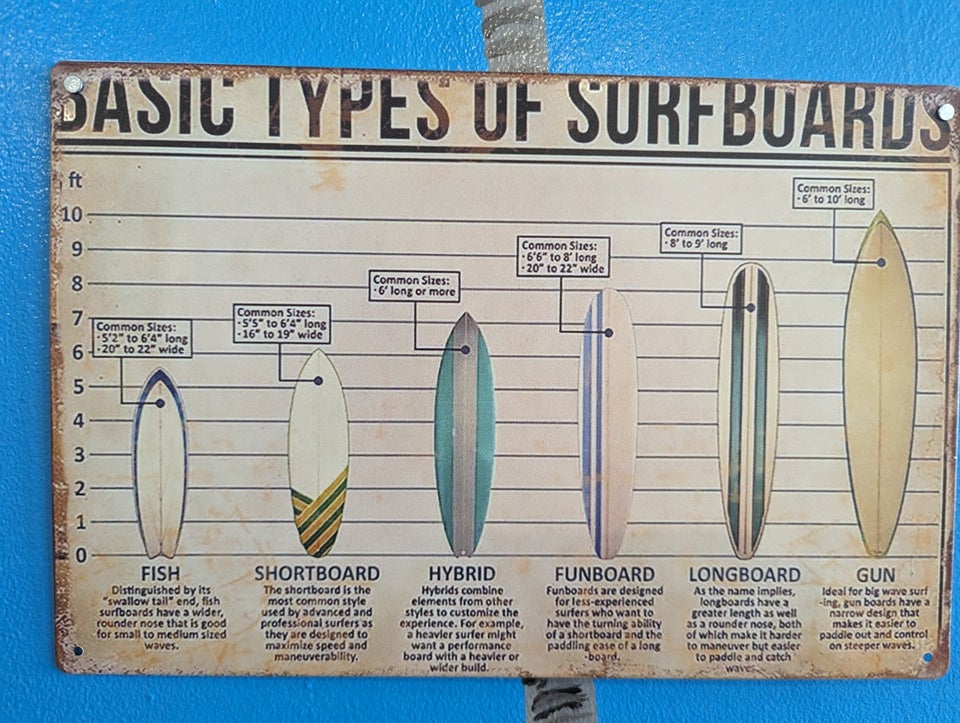 BASIC TYPES OF SURFBOARDS
ft
10
9
8
7
6
5
4
3
2
1
0
Common Sizes:
· 5'2" to 6'4" long
· 20" to 22" wide
Common Sizes:
· 5'5" to 6'4" long
· 16" to 19" wide
Common Sizes:
· 6' long or more
Common Sizes:
· 6'6" to 8' long
· 20" to 22" wide
Common Sizes:
· 8' to 9' long
Common Sizes:
· 6' to 10' long
FISH
Distinguished by its
"swallow tail" end, fish
surfboards have a wider,
rounder nose that is good
for small to medium sized
waves.
SHORTBOARD
The shortboard is the
most common style
used by advanced and
professional surfers as
they are designed to
maximize speed and
maneuverability.
HYBRID
Hybrids combine
elements from other
styles to customize the
experience. For example,
a heavier surfer might
want a performance
board with a heavier or
wider build.
FUNBOARD
Funboards are designed
for less-experienced
surfers who want to
have the turning ability
of a shortboard and the
paddling ease of a long
-board.
LONGBOARD
As the name implies,
longboards have a
greater length as well
as a rounder nose, both
of which make it harder
to maneuver but easier
to paddle and catch
waves.
GUN
Ideal for big wave surf
-ing, gun boards have a
narrow design that
makes it easier to
paddle out and control
on steeper waves.